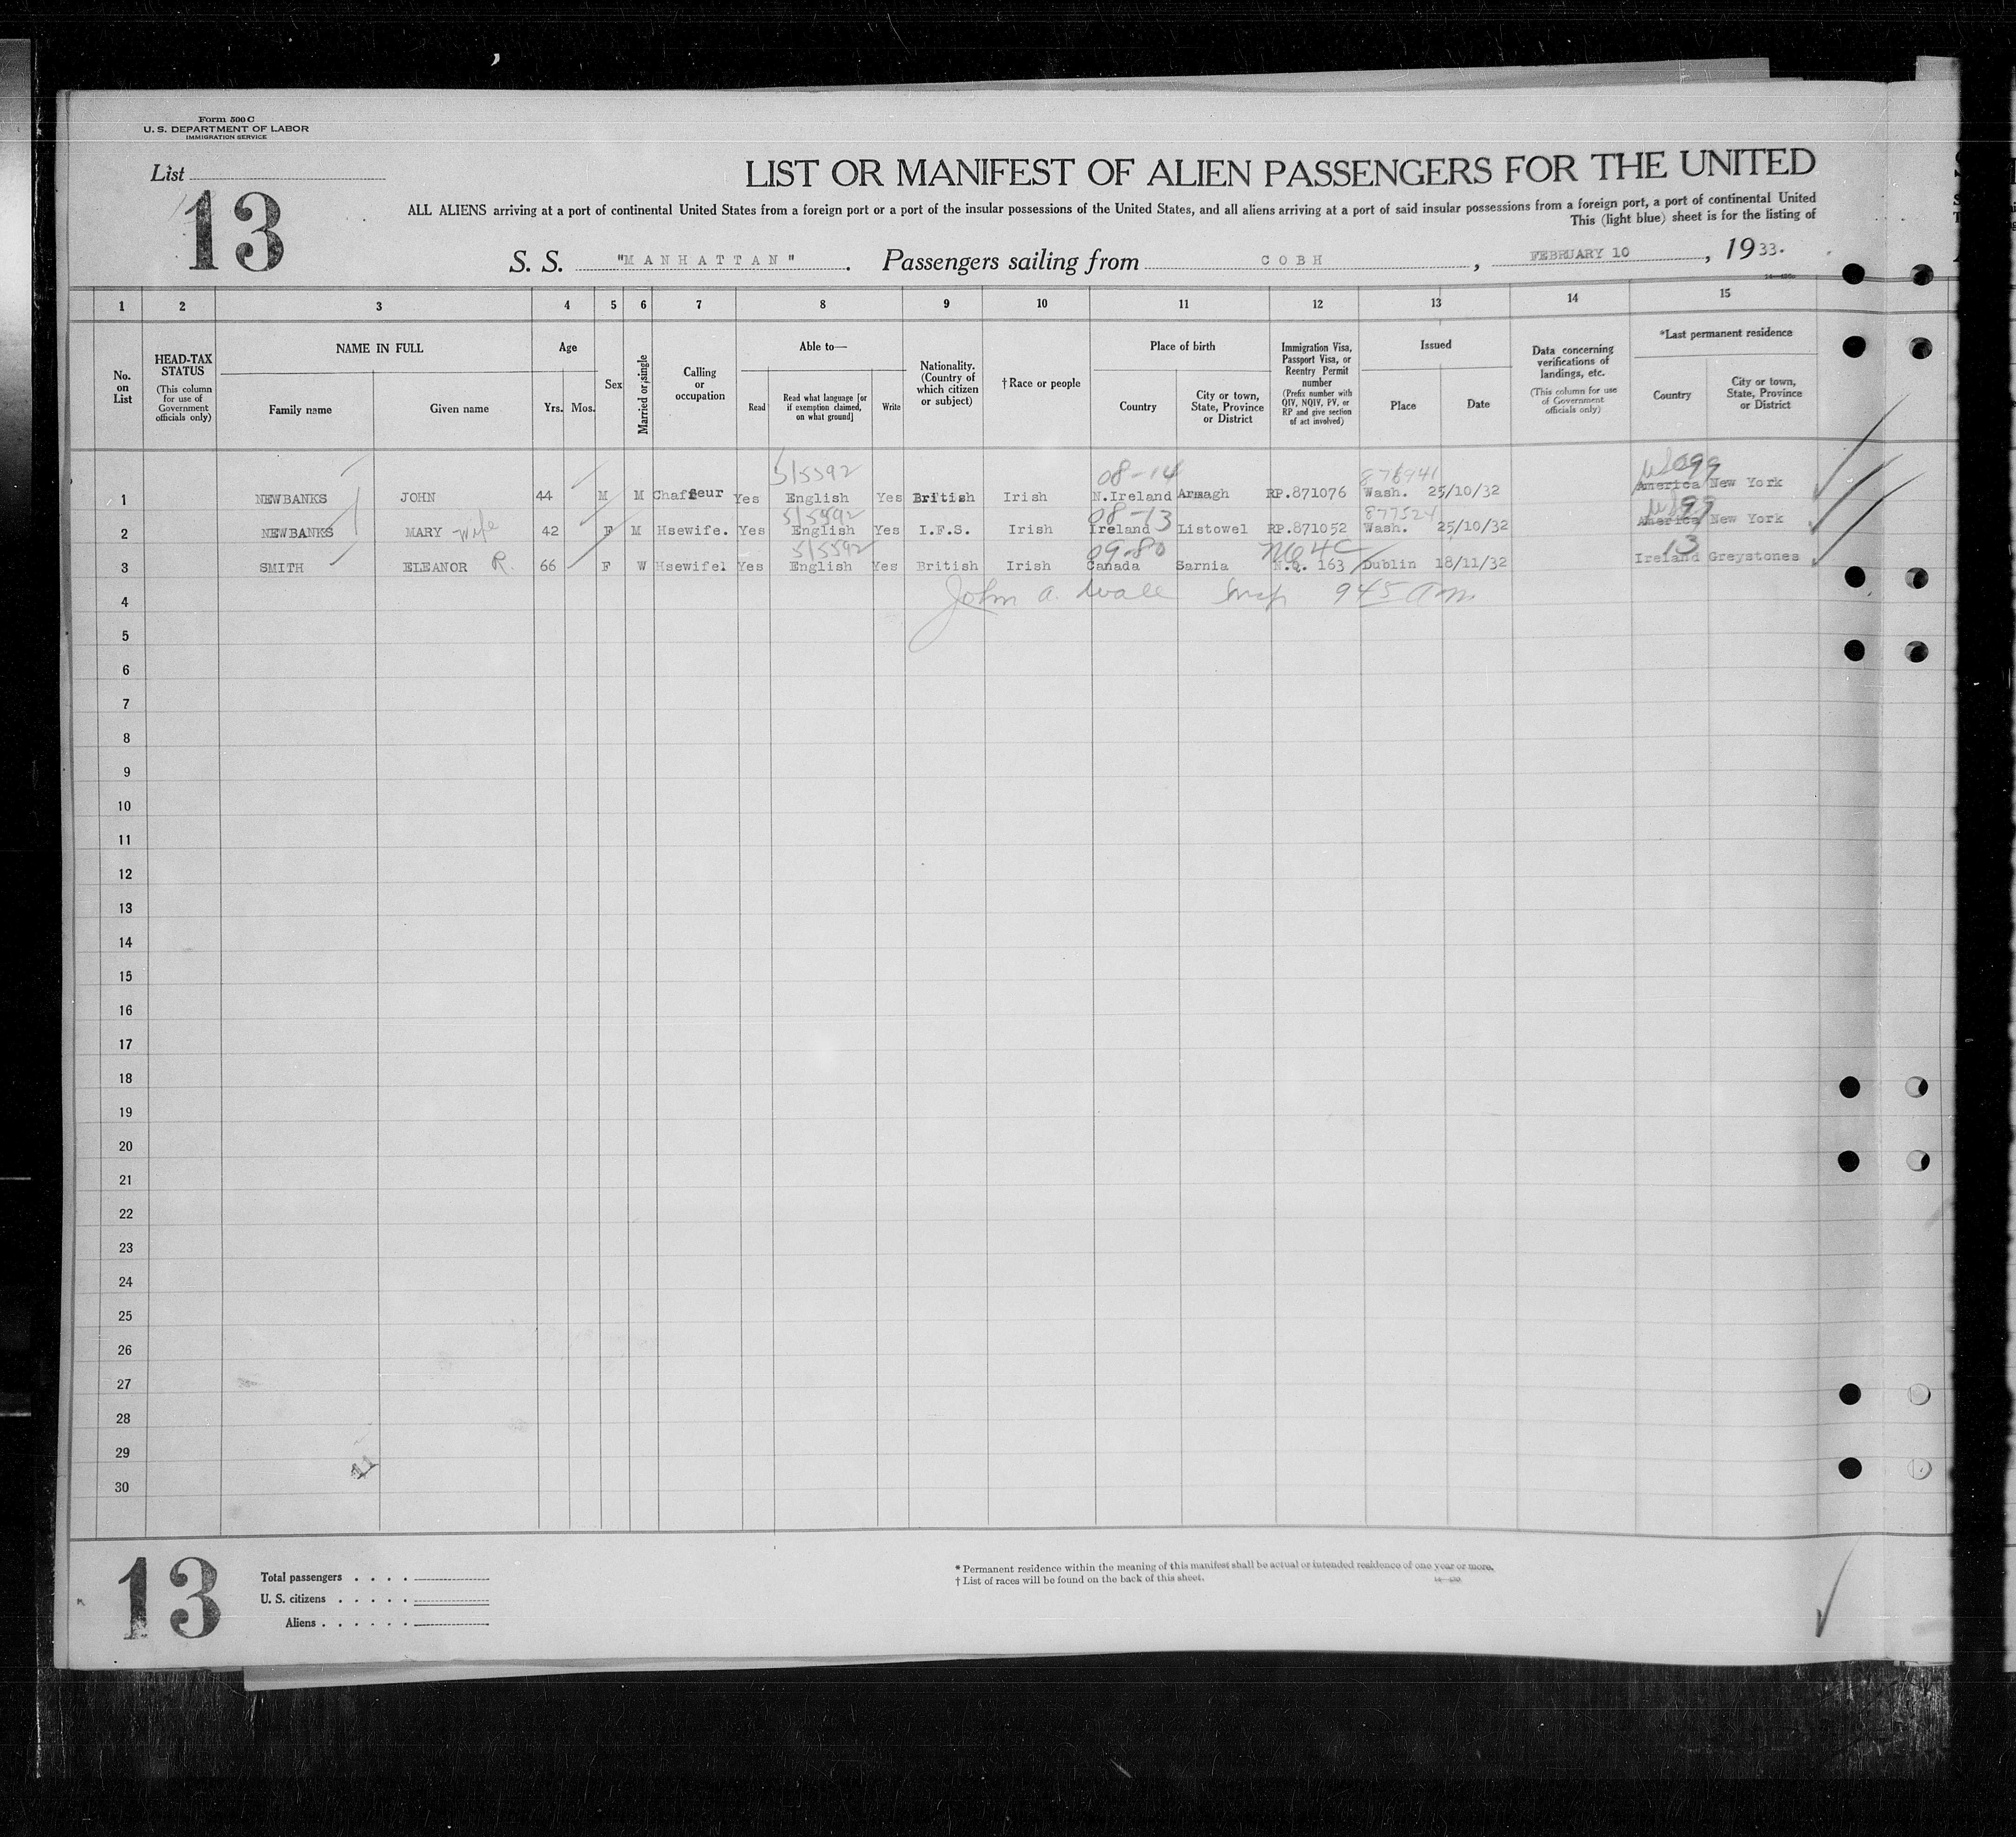 Form 500 C
U. S. DEPARTMENT OF LABOR
IMMIGRATION SERVICE
List
13
LIST OR MANIFEST OF ALIEN PASSENGERS FOR THE UNITED
ALL ALIENS arriving at a port of continental United States from a foreign port or a port of the insular possessions of the United States, and all aliens arriving at a port of said insular possessions from a foreign port, a port of continental United
This (light blue) sheet is for the listing of
S. S. "MANHATTAN". Passengers sailing from COBH, FEBRUARY 10, 1933.
1 2 3 4 5 6 7 8 9 10 11 12 13 14 15
No. on List
HEAD-TAX STATUS (This column for use of Government officials only)
NAME IN FULL Family name Given name
Age Yrs. Mos.
Sex
Married or single
Calling or occupation
Able to— Read Read what language [or if exemption claimed, on what ground] Write
Nationality. (Country of which citizen or subject)
† Race or people
Place of birth Country City or town, State, Province or District
Immigration Visa, Passport Visa, or Reentry Permit number (Prefix number with QIV, NQIV, PV, or RP and give section of act involved)
Issued Place Date
Data concerning verifications of landings, etc. (This column for use of Government officials only)
*Last permanent residence Country City or town, State, Province or District
5/5592 08-14 876941 99
1 NEWBANKS JOHN 44 M M Chaffeur Yes English Yes British Irish N.Ireland Armagh RP.871076 Wash. 25/10/32 America New York
5/5592 08-13 877524 99
2 NEWBANKS MARY wife 42 F M Hsewife. Yes English Yes I.F.S. Irish Ireland Listowel RP.871052 Wash. 25/10/32 America New York
5/5592 09-80 13
3 SMITH ELEANOR R. 66 F W Hsewife. Yes English Yes British Irish Canada Sarnia N.Q. 163 Dublin 18/11/32 Ireland Greystones
4 John A. Wall Insp 945 am
5
6
7
8
9
10
11
12
13
14
15
16
17
18
19
20
21
22
23
24
25
26
27
28
29
30
13
Total passengers . . . .
U. S. citizens . . . . .
Aliens . . . . . .
* Permanent residence within the meaning of this manifest shall be actual or intended residence of one year or more.
† List of races will be found on the back of this sheet.